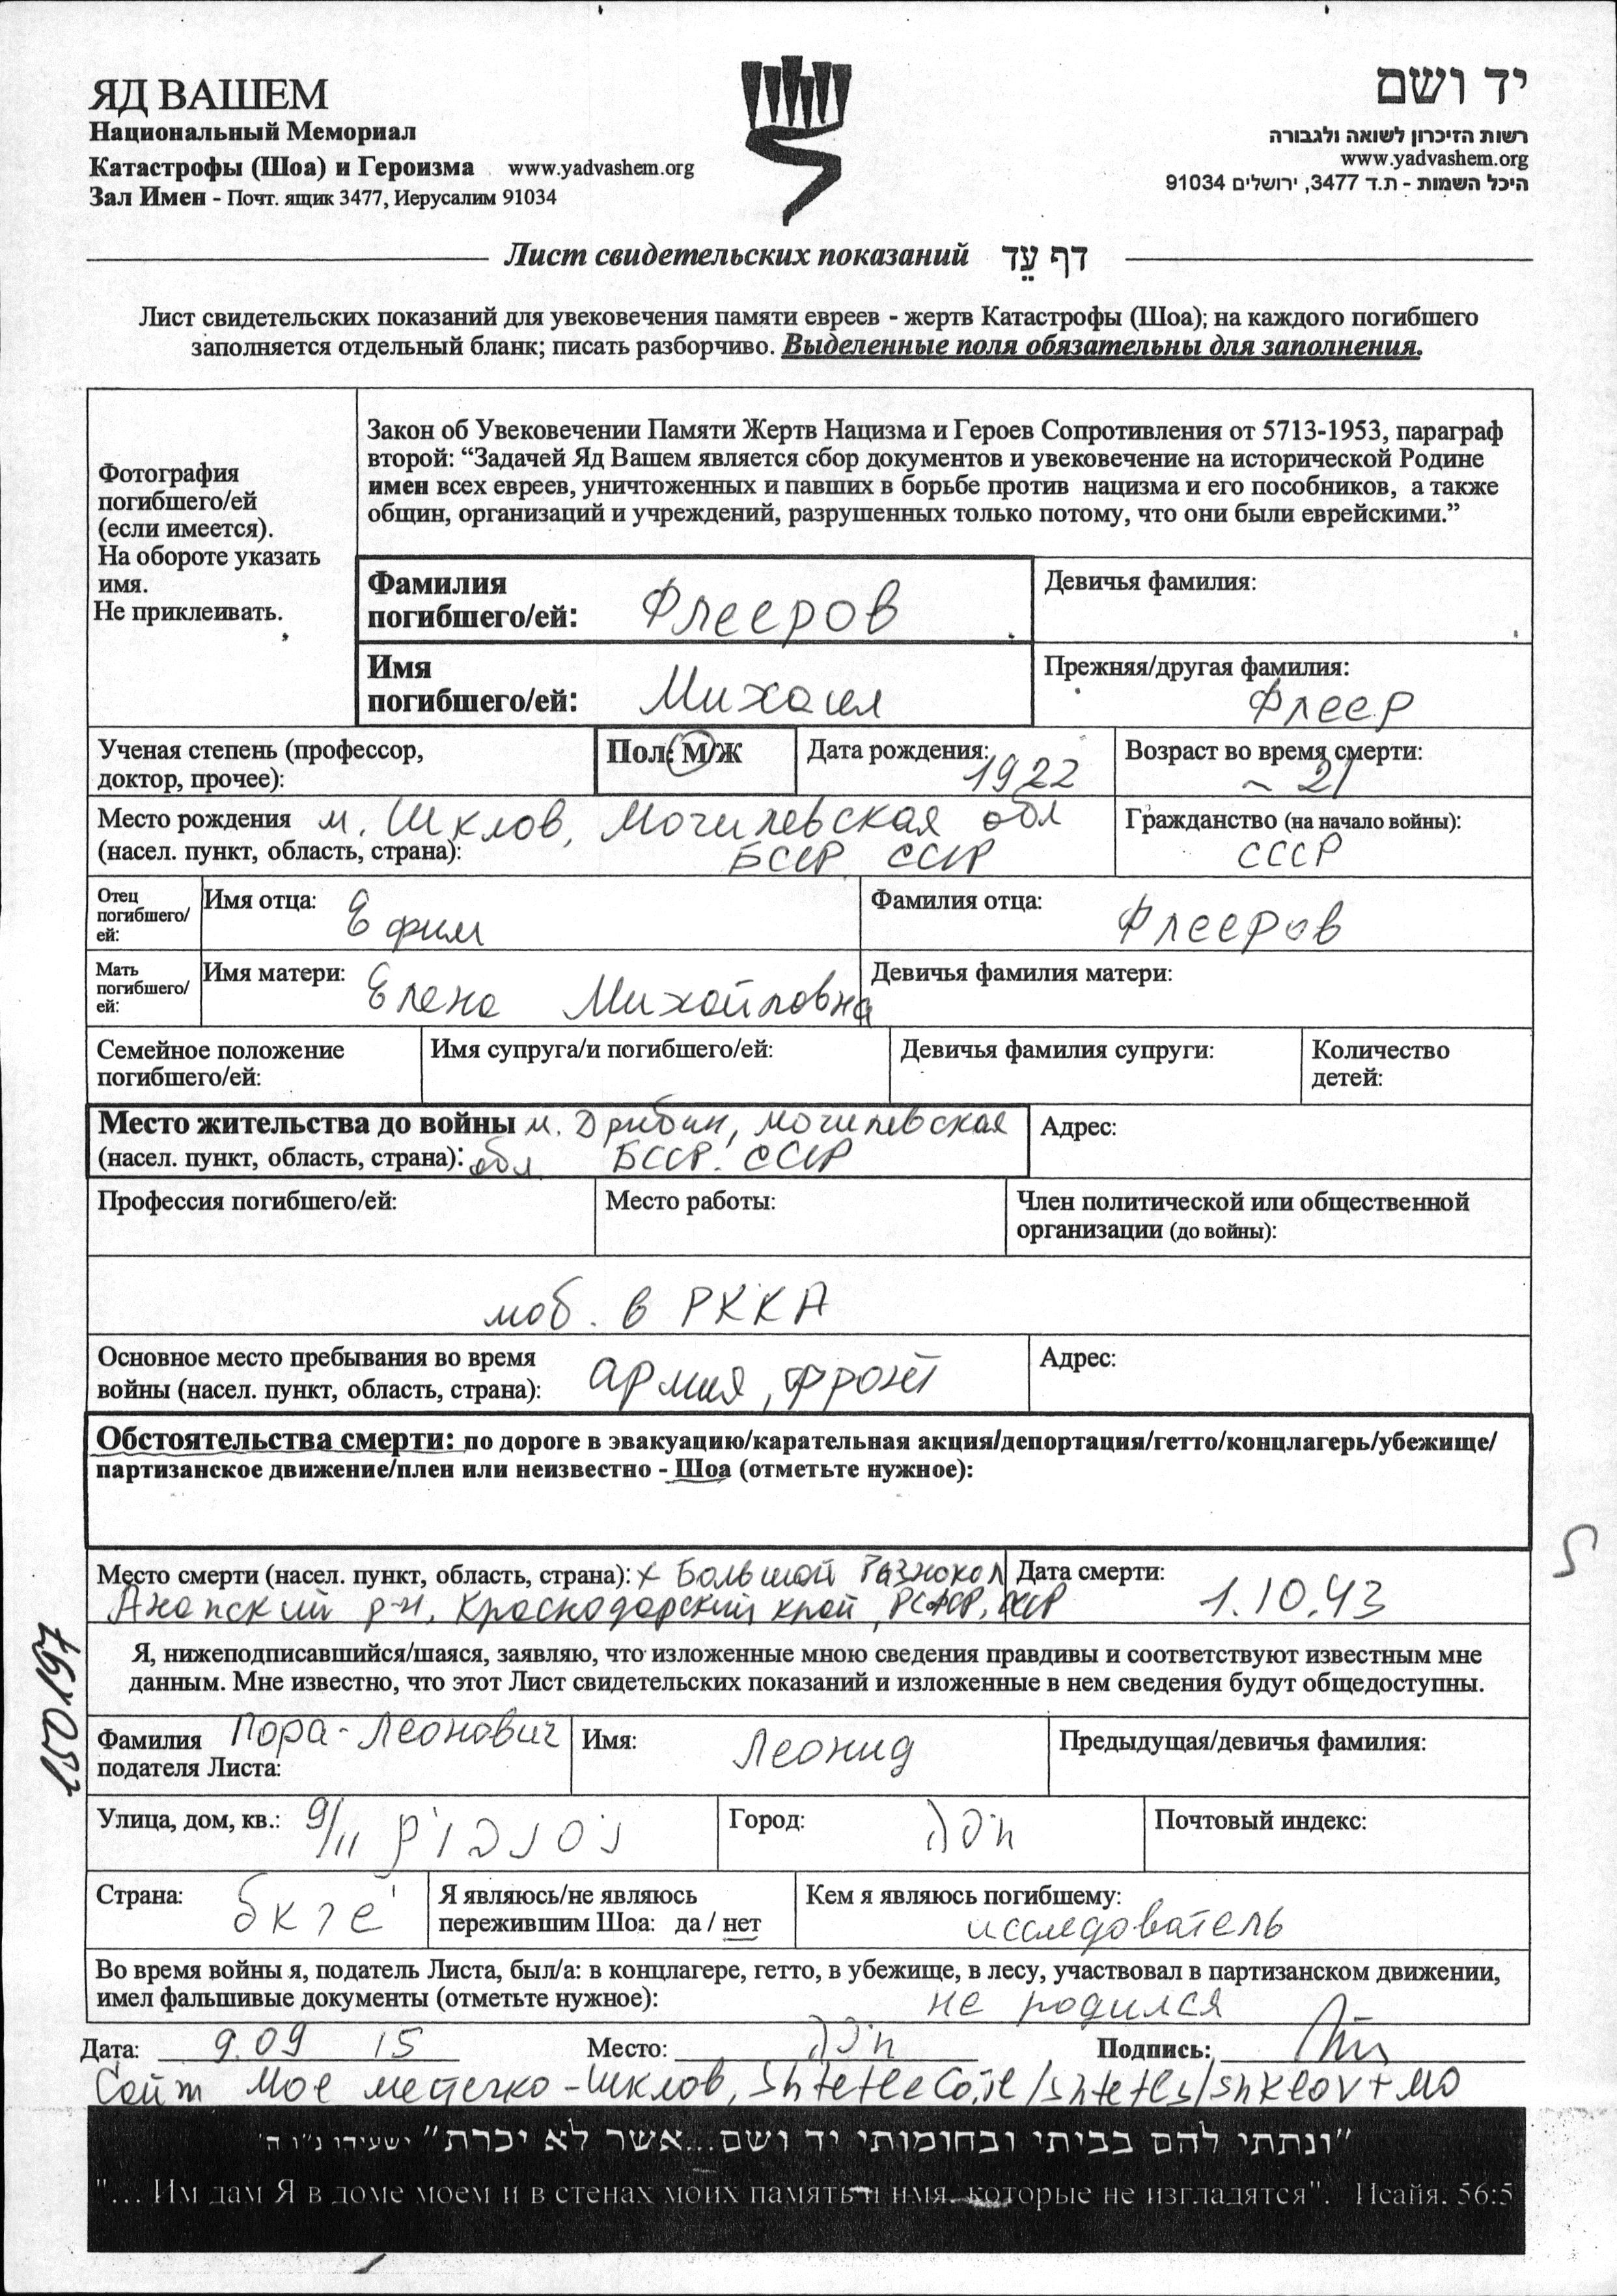 ЯД ВАШЕМ
Национальный Мемориал
Катастрофы (Шоа) и Героизма www.yadvashem.org
Зал Имен - Почт. ящик 3477, Иерусалим 91034
יד ושם
רשות הזיכרון לשואה ולגבורה
www.yadvashem.org
היכל השמות - ת.ד 3477, ירושלים 91034
Лист свидетельских показаний דף עֵד
Лист свидетельских показаний для увековечения памяти евреев - жертв Катастрофы (Шоа); на каждого погибшего
заполняется отдельный бланк; писать разборчиво. Выделенные поля обязательны для заполнения.
Фотография
погибшего/ей
(если имеется).
На обороте указать
имя.
Не приклеивать.
Закон об Увековечении Памяти Жертв Нацизма и Героев Сопротивления от 5713-1953, параграф
второй: “Задачей Яд Вашем является сбор документов и увековечение на исторической Родине
имен всех евреев, уничтоженных и павших в борьбе против нацизма и его пособников, а также
общин, организаций и учреждений, разрушенных только потому, что они были еврейскими.”
Фамилия
погибшего/ей: Флееров
Девичья фамилия:
Имя
погибшего/ей: Михаил
Прежняя/другая фамилия:
Флеер
Ученая степень (профессор,
доктор, прочее):
Пол: М/Ж
Дата рождения:
1922
Возраст во время смерти:
~ 21
Место рождения м. Шклов, Могилевская обл
(насел. пункт, область, страна): БССР СССР
Гражданство (на начало войны):
СССР
Отец
погибшего/
ей:
Имя отца: Ефим
Фамилия отца: Флееров
Мать
погибшего/
ей:
Имя матери: Елена Михайловна
Девичья фамилия матери:
Семейное положение
погибшего/ей:
Имя супруга/и погибшего/ей:
Девичья фамилия супруги:
Количество
детей:
Место жительства до войны м. Дрибин, Могилевская
(насел. пункт, область, страна): обл БССР. СССР
Адрес:
Профессия погибшего/ей:
Место работы:
Член политической или общественной
организации (до войны):
моб. в РККА
Основное место пребывания во время
войны (насел. пункт, область, страна): армия, фронт
Адрес:
Обстоятельства смерти: по дороге в эвакуацию/карательная акция/депортация/гетто/концлагерь/убежище/
партизанское движение/плен или неизвестно - Шоа (отметьте нужное):
Место смерти (насел. пункт, область, страна): х Большой Разнокол
Анапский р-н, Краснодарский край, РСФСР, СССР
Дата смерти:
1.10.43
Я, нижеподписавшийся/шаяся, заявляю, что изложенные мною сведения правдивы и соответствуют известным мне
данным. Мне известно, что этот Лист свидетельских показаний и изложенные в нем сведения будут общедоступны.
150197
Фамилия Пора-Леонович
подателя Листа:
Имя: Леонид
Предыдущая/девичья фамилия:
Улица, дом, кв.: 9/11
Город:
Почтовый индекс:
Страна:
Я являюсь/не являюсь
пережившим Шоа: да / нет
Кем я являюсь погибшему:
исследователь
Во время войны я, податель Листа, был/а: в концлагере, гетто, в убежище, в лесу, участвовал в партизанском движении,
имел фальшивые документы (отметьте нужное): не родился
Дата: 9.09 15 Место: Подпись:
Сайт Мое местечко - Шклов,
"ונתתי להם בביתי ובחומותי יד ושם...אשר לא יכרת" ישעיהו נ"ו ה'
"... Им дам Я в доме моем и в стенах моих память и имя, которые не изгладятся". Исайя. 56:5